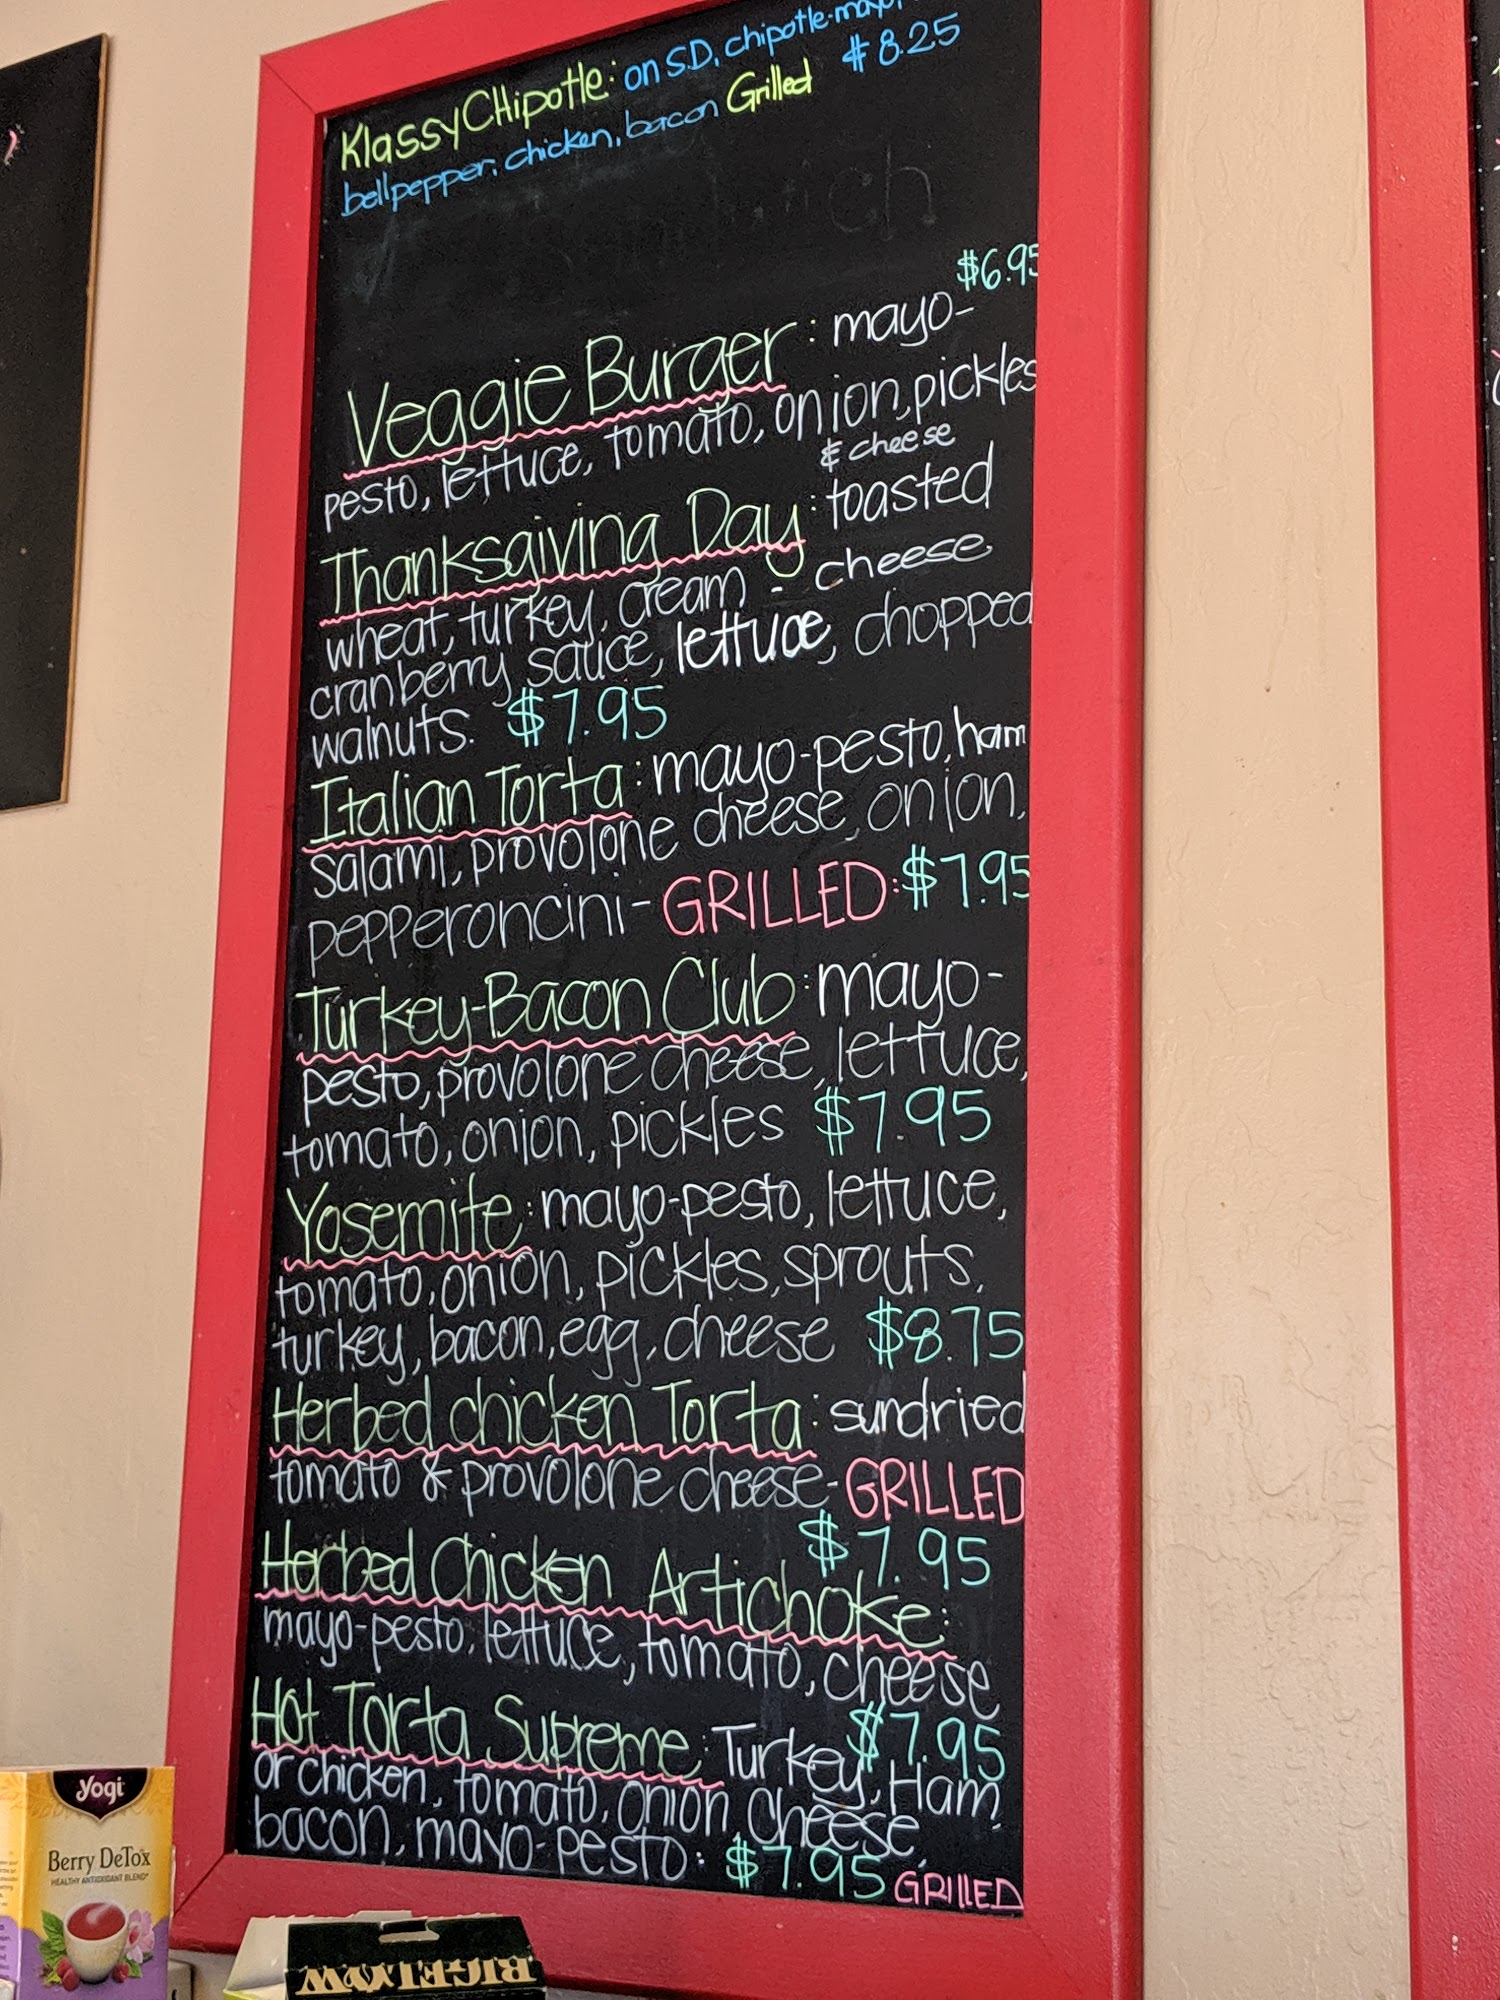 KlassyCHipotle: on S.D, chipotle-mayo,
bellpepper, chicken, bacon Grilled $8.25
ch
$6.95
Veggie Burger: mayo-
pesto, lettuce, tomato, onion, pickles
& cheese
Thanksgiving Day: toasted
wheat, turkey, cream - cheese,
cranberry sauce, lettuce, chopped
walnuts. $7.95
Italian Torta: mayo-pesto, ham
salami, provolone cheese, onion,
pepperoncini- GRILLED: $7.95
Turkey-Bacon Club: mayo-
pesto, provolone cheese, lettuce,
tomato, onion, pickles $7.95
Yosemite: mayo-pesto, lettuce,
tomato, onion, pickles, sprouts,
turkey, bacon, egg, cheese $8.75
Herbed chicken Torta: sundried
tomato & provolone cheese- GRILLED
$7.95
Herbed Chicken Artichoke:
mayo-pesto, lettuce, tomato, cheese
$7.95
Hot Torta Supreme: Turkey, Ham
or chicken, tomato, onion, cheese,
bacon, mayo-pesto: $7.95 GRILLED
yogi
Berry DeTox
HEALTHY ANTIOXIDANT BLEND*
BIGELOW